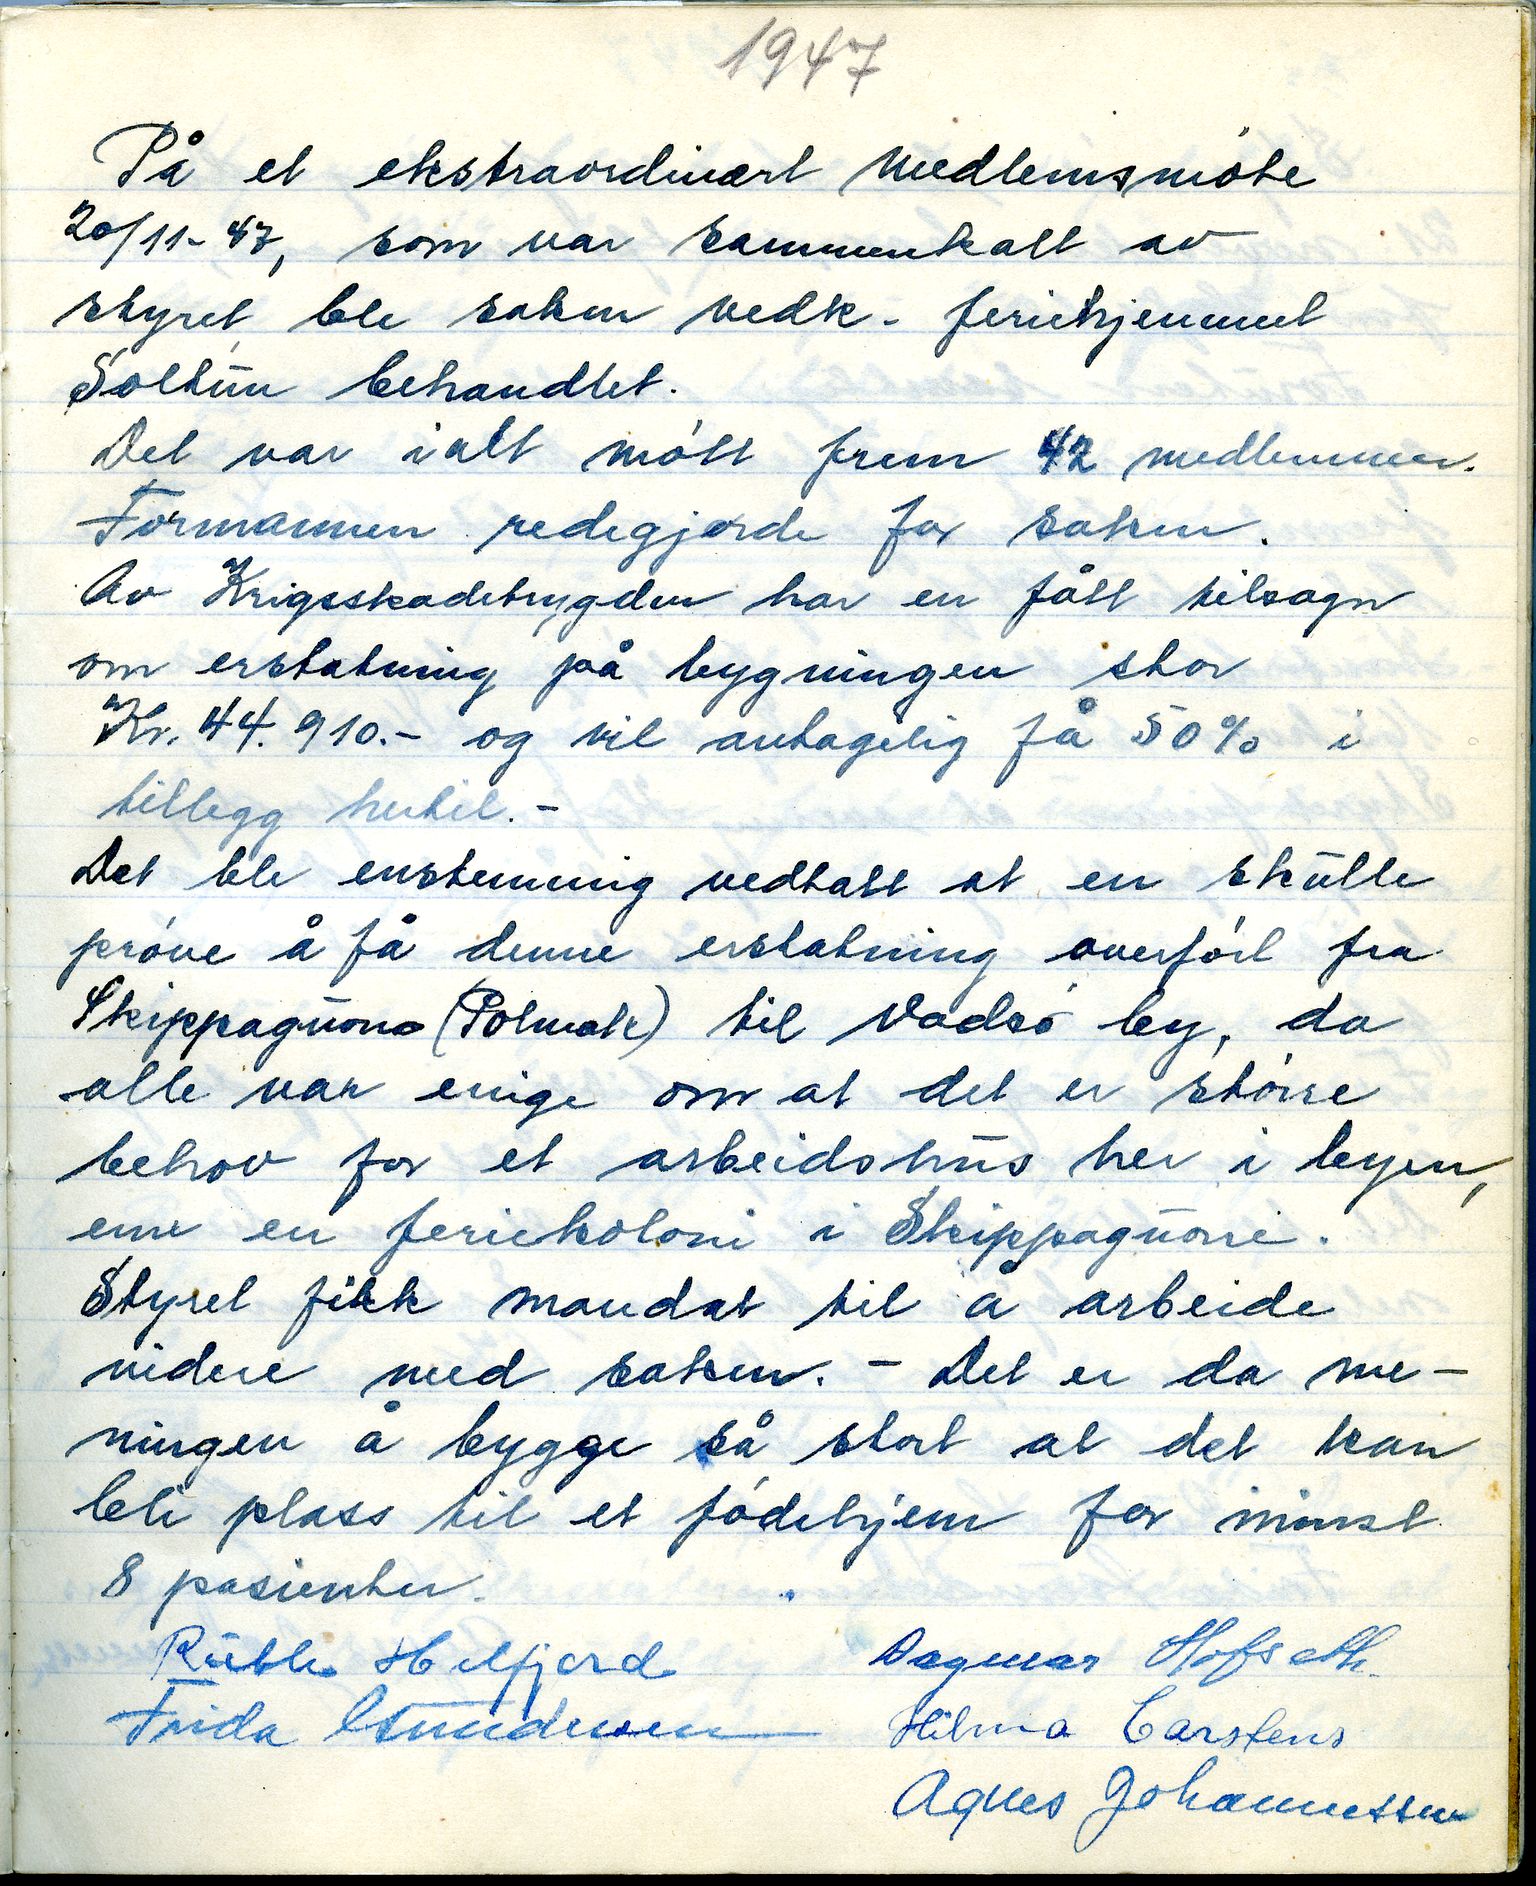 1947
På et ekstraordinært medlemsmöte
20/11-47, som var sammenkalt av
styret ble saken vedk. feriehjemmet
Soltun behandlet.
Det var ialt mött frem 42 medlemmer.
Formannen redegjorde for saken.
Av Krigsskadetrygden har en fått tilsagn
om erstatning på bygningen stor
Kr. 44.910.- og vil antagelig få 50% i
tillegg hertil.-
Det ble enstemmig vedtatt at en skulle
pröve å få denne erstatning overfört fra
Skippagurra (Polmak) til Vadsö by, da
alle var enige om at det er större
behov for et arbeidshus her i byen,
enn en feriekoloni i Skippagurra.
Styret fikk mandat til å arbeide
videre med saken. - Det er da me-
ningen å bygge så stort at det kan
bli plass til et födehjem for minst
8 pasienter.
Ruth Hilfjord Dagmar Hofseth.
Frida Gundersen Hilma Carstens
Agnes Johannessen